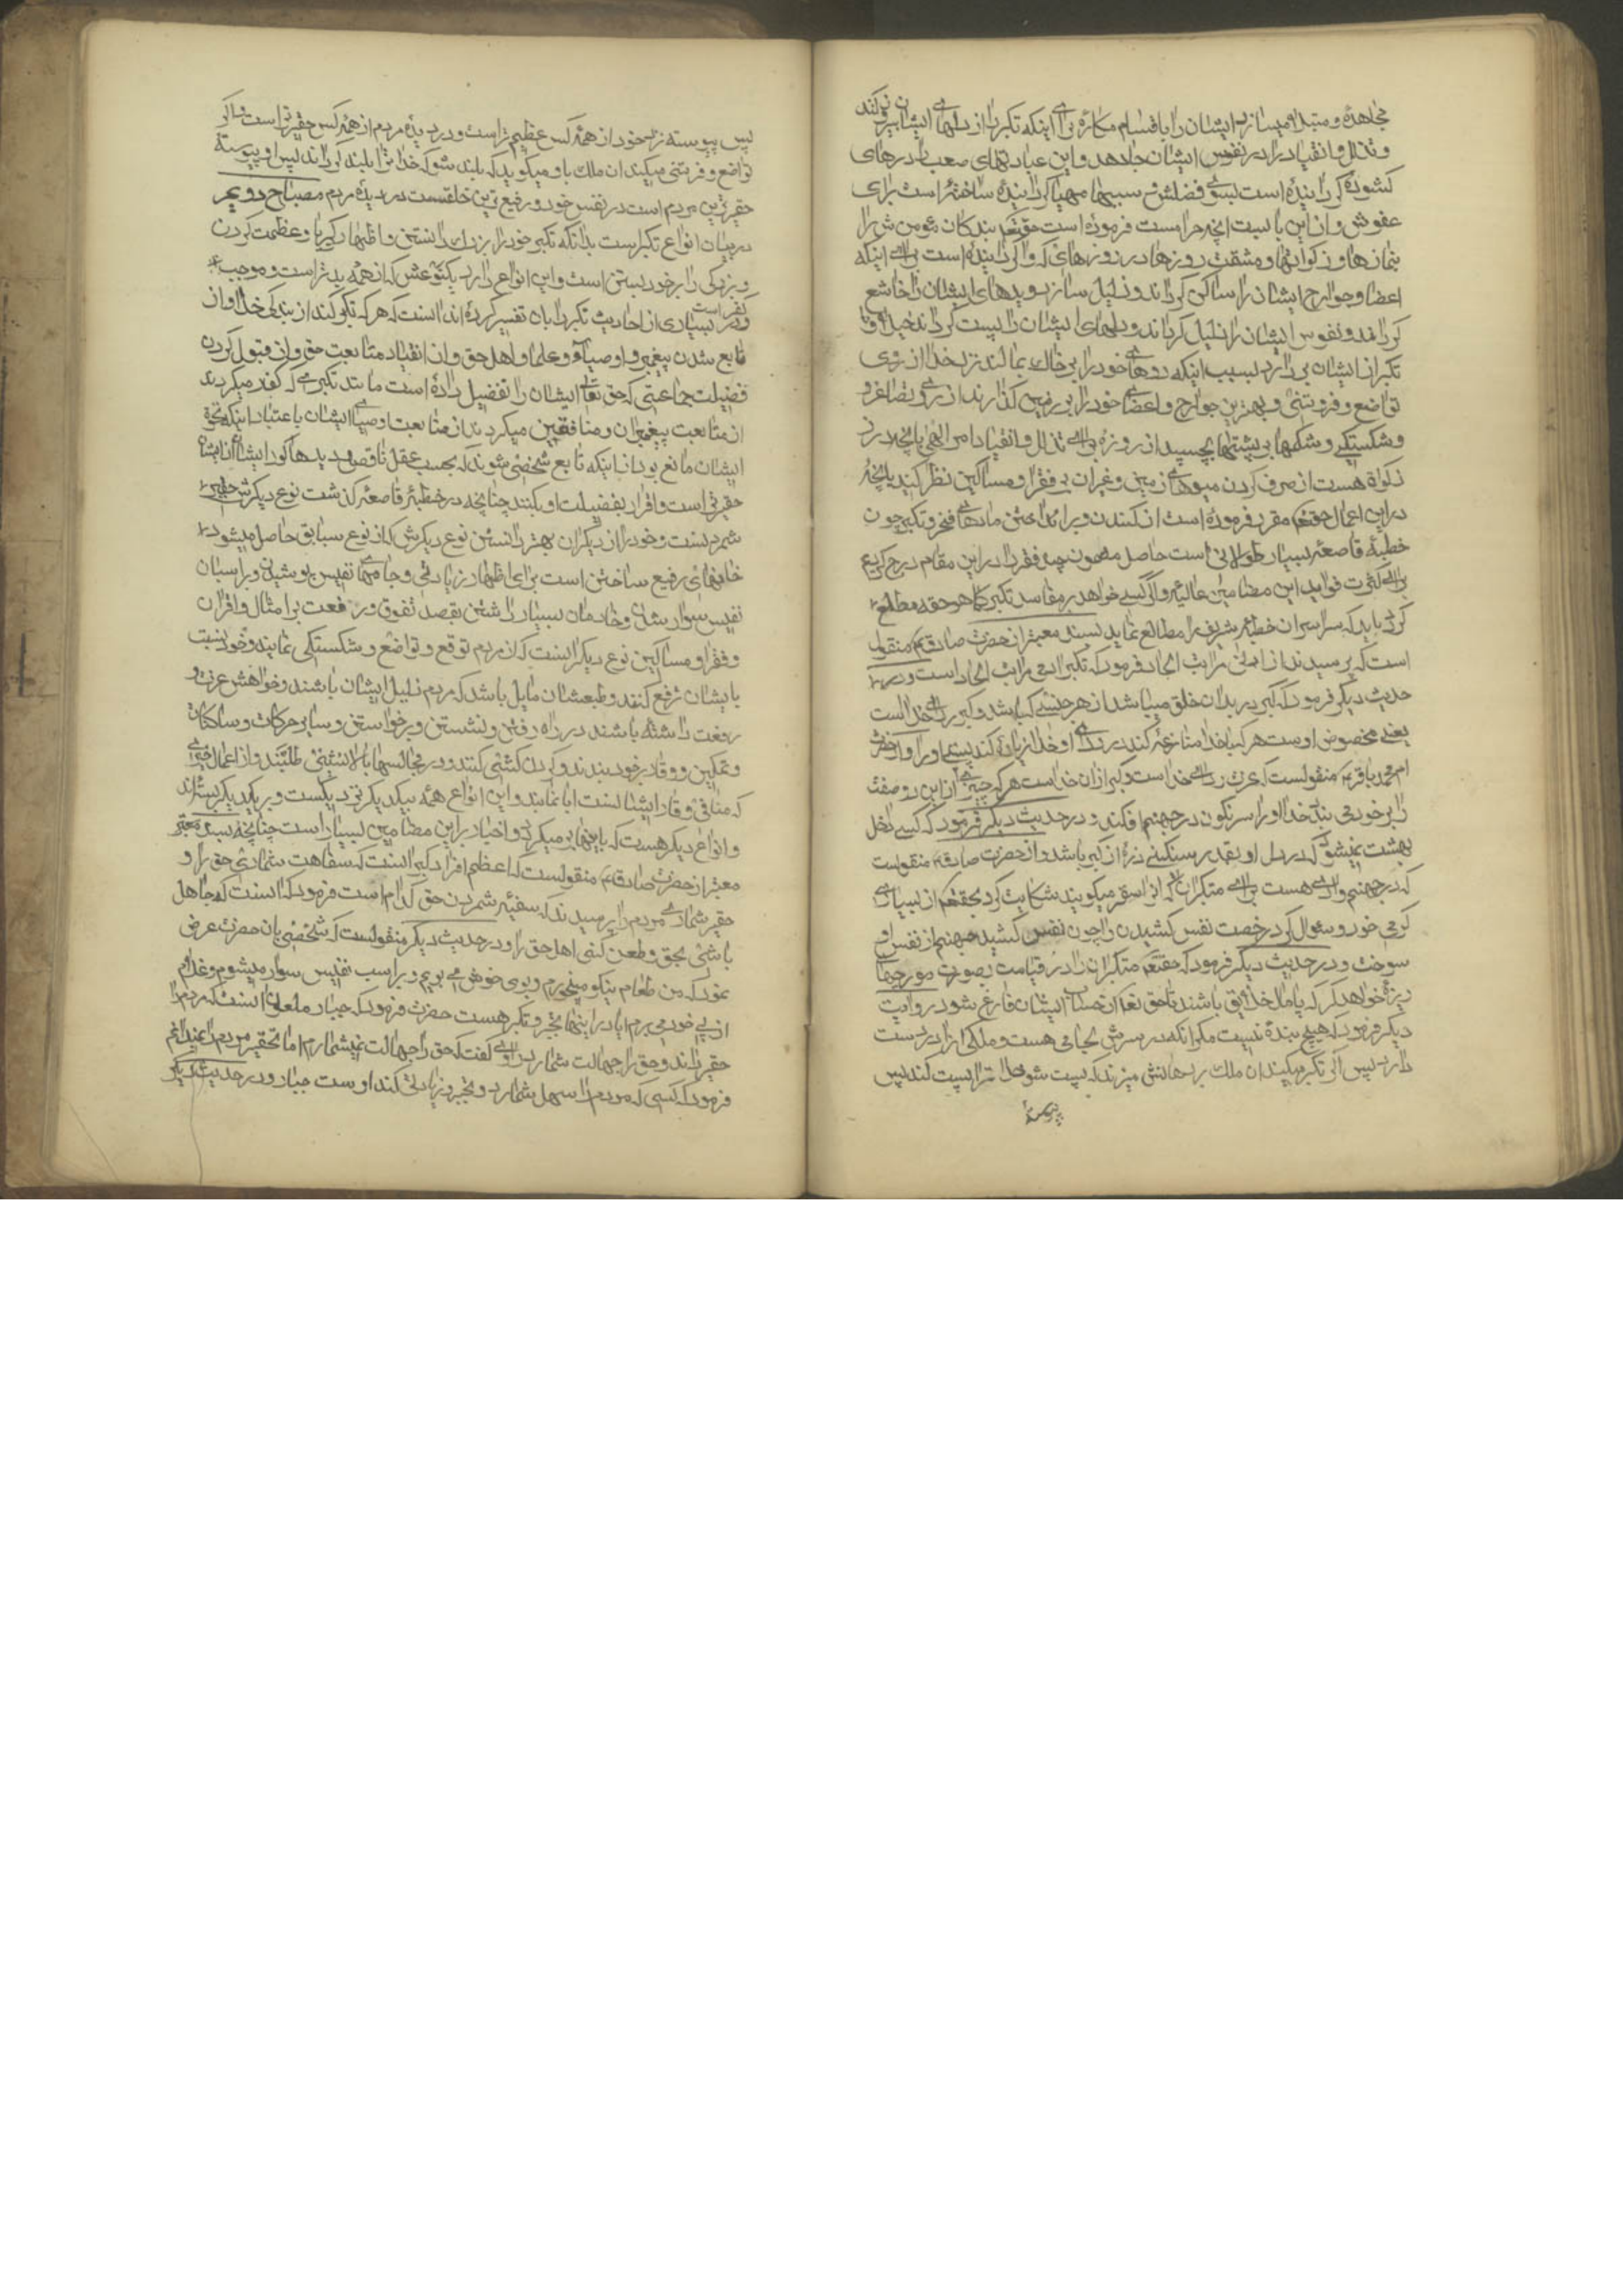 مجاهده و مبتلا میسازد ایشان را باقسام مکاره برای اینکه تکبر را از دلهای ایشان بیرون کند
و تذلل و انقیاد را در نفوس ایشان جا دهد و این عبادتهای صعب را درهای
کشوده کردانیده است بسوی فضلش و سببها مهیا کردانیده ساخته است برای
عفوش و از این بابست آنچه حراست فرموده است حقتعه بندکان مؤمنش را
بنمازها و زکواتها و مشقت روزها در روزهای که واکردانیده است برای اینکه
اعضا و جوارح ایشان را ساکن کرداند و ذلیل سازد و دیدهای ایشان را خاشع
کرداند و نفوس ایشان را ذلیل کرداند و دلهای ایشان را پست کرداند و خیلا و
تکبر از ایشان بردارد بسبب اینکه روهای خود را بر خاک بمالند نزد خدا از روی
تواضع و فروتنی و بهترین جوارح و اعضای خود را بر زمین کذارند از روی تصاغر و
و شکستکی و شکمها بر پشتها بچسپد از روزه برای تذلل و انقیاد امر الهی با آنچه در
زکوة هست از صرف کردن میوهای زمین و غیر آن بر فقرا و مساکین نظر کنید بآنچه
در این اعمال حقتعه مقرر فرموده است از کندن و برانداختن مادهای فخر و تکبر چون
خطبه قاصعه بسیار طولانی است حاصل مضمون چند فقره را در این مقام درج کردیم
برای کثرت فواید این مضامین عالیه و اکر کسی خواهد بر مفاسد تکبر کما هو حقه مطلع
کردد باید که سراسر آن خطبه شریفه را مطالعه نماید بسند معتبر از حضرت صادق ع منقول
است که پرسیدند از ادنی مراتب الحاد فرمود که تکبر ادنی مراتب الحاد است و در
حدیث دیکر فرمود که کبر در بدان خلق میباشد از هر جنسی که باشد و کبر ردای خداست
یعنی مخصوص اوست هر که با خدا منازعه کند در ردای او خدا زیاده نکند بستی او را و از حضرت
امام محمد باقر ع منقولست که عزت ردای خداست و کبر ازار خداست هر که چیزی از این دو صفت
را بر خود می بندد خدا او را سرنکون در جهنم افکند و در حدیث دیکر فرمود که کسی داخل
بهشت نمیشود که در دل او بقدر سنکینی ذره از کبر باشد و از حضرت صادق ع منقولست
که در جهنم وادی هست برای متکبران که آنرا سقر میکویند شکایت کرد بحقتعم از بسیاری
کرمی خود و سؤال کرد رخصت نفس کشیدن را چون نفس کشید جهنم از نفس او
سوخت و در حدیث دیکر فرمود که حقتعه متکبران را در قیامت بصورت مورچهای
ریزه خواهد کرد که پامال خلایق باشند تا حق تعه از حساب ایشان فارغ شود در روایت
دیکر فرمود که هیچ بنده نیست مکر آنکه در سرش لجامی هست و ملکی آنرا در دست
دارد پس اکر تکبر میکند آن ملک بر دهانش میزند که پست شو خدا ترا پست کند پس
پس پیوسته نزد خود از همه کس عظیم تر است و در دیده مردم از همه کس حقیرتر است و اکر
تواضع و فروتنی میکند آن ملک باو میکوید که بلند شو که خدا ترا بلند کرداند پس او پیوسته
حقیرترین مردم است در نفس خود و رفیع ترین خلقست در دیده مردم مصباح دویم
در بیان انواع تکبر است بدانکه تکبر خود را بزرک دانستن و اظهار کبریا و عظمت کردن
و بزرکی را بر خود بستن است و این انواع دارد یکنوعش که از همه بدتر است و موجب
کفر است و در بسیاری از احادیث تکبر را بآن تفسیر کرده اند آنست که هر که تکبر کند از بندکی خدا و از
تابع شدن پیغمبر و اوصیا و علما و اهل حق و از انقیاد متابعت حق و از قبول کردن
فضیلت جماعتی که حق تعالی ایشان را تفضیل داده است مانند تکبری که کفار میکردند
از متابعت پیغمبران و منافقین میکردند از متابعت اوصیای ایشان باعتبار اینکه نخوة
ایشان مانع بود از اینکه تابع شخصی شوند که بحسب عقل ناقص و دیدهای کور ایشان از ایشان
حقیرتر است و اقرار بفضیلت او بکنند چنانچه در خطبه قاصعه کذشت نوع دیکرش حقیر
شمردنست و خود را از دیکران بهتر دانستن نوع دیکرش که از نوع سابق حاصل میشود
خانهای رفیع ساختن است برای اظهار زیادتی و جامهای نفیس پوشیدن و بر اسبان
نفیس سوار شدن و خادمان بسیار داشتن بقصد تفوق و رفعت بر امثال و اقران
و فقرا و مساکین نوع دیکر آنست که از مردم توقع و تواضع و شکستکی نمایند و خود نسبت
بایشان ترفع کنند و طبعشان مایل باشد که مردم ذلیل ایشان باشند و خواهش عزت و
رفعت داشته باشند در راه رفتن و نشستن و برخواستن و سایر حرکات و سکنات
و تمکین و وقار بر خود بندند و کردن کشی کنند و در مجالسها بالانشینی طلبند و از اعمال خیری
که منافی وقار ایشانست ابا نمایند و این انواع همه بیکدیکر نزدیکست و بر یکدیکر بسته اند
و انواع دیکر هست که باینها برمیکردد و اخبار در این مضامین بسیار است چنانچه بسند معتبر
معتبر از حضرت صادق ع منقولست که اعظم افراد کبر آنست که سفاهت شماری حق را و
حقیر شماری مردم را پرسیدند که سفیه شمردن حق کدام است فرمود که آنست که جاهل
باشی بحق و طعن کنی اهل حق را و در حدیث دیکر منقولست که شخصی بآن حضرت عرض
نمود که من طعام نیکو میخورم و بوی خوش می بویم و بر اسب نفیس سوار میشوم و غلام
از پی خود می برم آیا در اینها تجبر و تکبر هست حضرت فرمود که جبار ملعون آنست که مردم را
حقیر داند و حق را جهالت شمارد راوی کفت که حق را جهالت نمیشمارم اما تحقیر مردم را نمیدانم
فرمود که کسی که مردم را سهل شمارد و تجبر و زیادتی کند اوست جبار و در حدیث دیکر